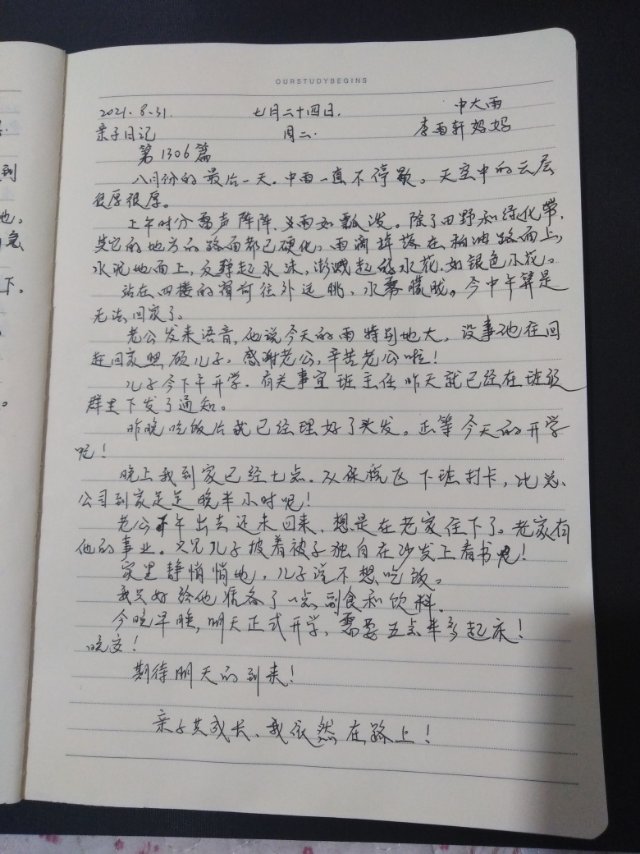 OURSTUDYBEGINS
2021.8.31. 七月二十四日. 中大雨
亲子日记 周二. 李雨轩妈妈
第1306篇
八月份的最后一天。中雨一直不停歇。天空中的云层
很厚很厚。
上午时分雷声阵阵,大雨如瓢泼。除了田野和绿化带,
其它的地方的路面都已硬化,雨滴摔落在柏油路面上,
水泥地面上,反弹起水珠,溅起的水花,如银色小花。
站在四楼的窗前往外远眺,水雾朦胧。今中午算是
无法回家了。
老公发来语音,他说今天的雨特别地大,没事他在回
赶回家照顾儿子。感谢老公,辛苦老公啦!
儿子今下午开学,有关事宜班主任昨天就已经在班级
群里下发了通知。
昨晚吃饭后我已经理好了头发。正等今天的开学
呢!
晚上我到家已经七点。从保税区下班打卡,比总
公司到家足足晚半小时呢!
老公下午出去还未回来,想是在老家住下了。老家有
他的事业。只见儿子披着被子独自在沙发上看书呢!
家里静悄悄地,儿子说不想吃饭。
我只好给他准备了一点副食和饮料.
今晚早睡,明天正式开学,需要五点半多起床!
晚安!
期待明天的到来!
亲子共成长、我依然在路上!